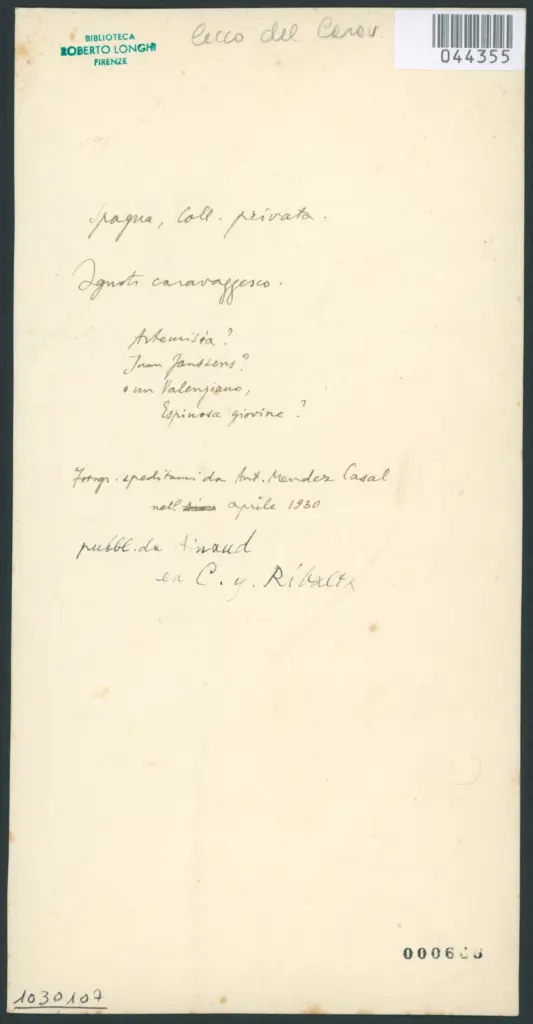 BIBLIOTECA
ROBERTO LONGHI
FIRENZE
Cecco del Carav.
044355
Spagna, Coll. privata.
Ignoto caravaggesco.
Artemisia?
Juan Janssens?
o un Valenziano,
Espinosa giovine?
Fotogr. speditami da Ant. Mendez Casal
nell aprile 1930
pubbl. da Ainaud
C. y. Ribalta
1030107